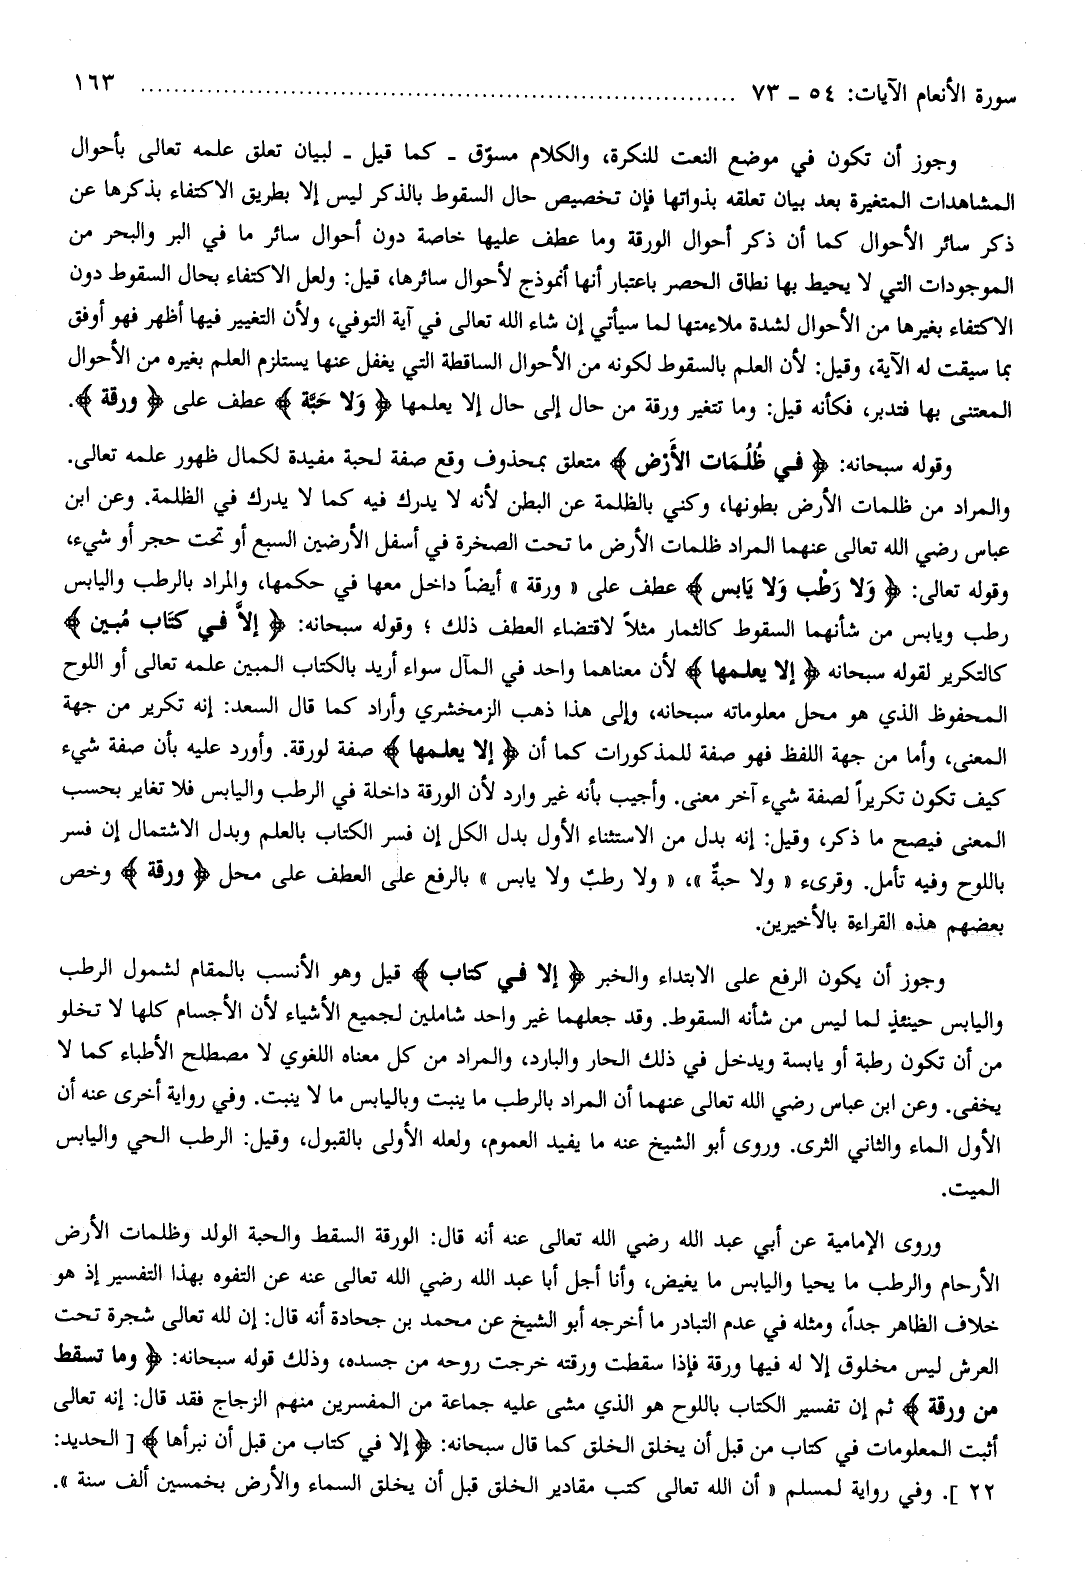 سورة الأنعام الآيات: ٥٤ ـ ٧٣ .......................................................................... ١٦٣
وجوز أن تكون في موضع النعت للنكرة، والكلام مسوّق ـ كما قيل ـ لبيان تعلق علمه تعالى بأحوال
المشاهدات المتغيرة بعد بيان تعلقه بذواتها فإن تخصيص حال السقوط بالذكر ليس إلا بطريق الاكتفاء بذكرها عن
ذكر سائر الأحوال كما أن ذكر أحوال الورقة وما عطف عليها خاصة دون أحوال سائر ما في البر والبحر من
الموجودات التي لا يحيط بها نطاق الحصر باعتبار أنها أنموذج لأحوال سائرها، قيل: ولعل الاكتفاء بحال السقوط دون
الاكتفاء بغيرها من الأحوال لشدة ملاءمتها لما سيأتي إن شاء الله تعالى في آية التوفي، ولأن التغيير فيها أظهر فهو أوفق
بما سيقت له الآية، وقيل: لأن العلم بالسقوط لكونه من الأحوال الساقطة التي يغفل عنها يستلزم العلم بغيره من الأحوال
المعتنى بها فتدبر، فكأنه قيل: وما تتغير ورقة من حال إلى حال إلا يعلمها ﴿ وَلا حَبَّة ﴾ عطف على ﴿ ورقة ﴾.
وقوله سبحانه: ﴿ في ظُلُمَات الأَرْض ﴾ متعلق بمحذوف وقع صفة لحبة مفيدة لكمال ظهور علمه تعالى.
والمراد من ظلمات الأرض بطونها، وكني بالظلمة عن البطن لأنه لا يدرك فيه كما لا يدرك في الظلمة. وعن ابن
عباس رضي الله تعالى عنهما المراد ظلمات الأرض ما تحت الصخرة في أسفل الأرضين السبع أو تحت حجر أو شيء،
وقوله تعالى: ﴿ وَلا رَطْب وَلا يَابس ﴾ عطف على « ورقة » أيضاً داخل معها في حكمها، والمراد بالرطب واليابس
رطب ويابس من شأنهما السقوط كالثمار مثلاً لاقتضاء العطف ذلك ؛ وقوله سبحانه: ﴿ إلاَّ في كتَاب مُبين ﴾
كالتكرير لقوله سبحانه ﴿ إلا يعلمها ﴾ لأن معناهما واحد في المآل سواء أريد بالكتاب المبين علمه تعالى أو اللوح
المحفوظ الذي هو محل معلوماته سبحانه، وإلى هذا ذهب الزمخشري وأراد كما قال السعد: إنه تكرير من جهة
المعنى، وأما من جهة اللفظ فهو صفة للمذكورات كما أن ﴿ إلا يعلمها ﴾ صفة لورقة. وأورد عليه بأن صفة شيء
كيف تكون تكريراً لصفة شيء آخر معنى. وأجيب بأنه غير وارد لأن الورقة داخلة في الرطب واليابس فلا تغاير بحسب
المعنى فيصح ما ذكر، وقيل: إنه بدل من الاستثناء الأول بدل الكل إن فسر الكتاب بالعلم وبدل الاشتمال إن فسر
باللوح وفيه تأمل. وقرىء « ولا حبةٌ »، « ولا رطبٌ ولا يابس » بالرفع على العطف على محل ﴿ ورقة ﴾ وخص
بعضهم هذه القراءة بالأخيرين.
وجوز أن يكون الرفع على الابتداء والخبر ﴿ إلا في كتاب ﴾ قيل وهو الأنسب بالمقام لشمول الرطب
واليابس حينئذٍ لما ليس من شأنه السقوط. وقد جعلهما غير واحد شاملين لجميع الأشياء لأن الأجسام كلها لا تخلو
من أن تكون رطبة أو يابسة ويدخل في ذلك الحار والبارد، والمراد من كل معناه اللغوي لا مصطلح الأطباء كما لا
يخفى. وعن ابن عباس رضي الله تعالى عنهما أن المراد بالرطب ما ينبت وباليابس ما لا ينبت. وفي رواية أخرى عنه أن
الأول الماء والثاني الثرى. وروى أبو الشيخ عنه ما يفيد العموم، ولعله الأولى بالقبول، وقيل: الرطب الحي واليابس
الميت.
وروى الإمامية عن أبي عبد الله رضي الله تعالى عنه أنه قال: الورقة السقط والحبة الولد وظلمات الأرض
الأرحام والرطب ما يحيا واليابس ما يغيض، وأنا أجل أبا عبد الله رضي الله تعالى عنه عن التفوه بهذا التفسير إذ هو
خلاف الظاهر جداً، ومثله في عدم التبادر ما أخرجه أبو الشيخ عن محمد بن جحادة أنه قال: إن لله تعالى شجرة تحت
العرش ليس مخلوق إلا له فيها ورقة فإذا سقطت ورقته خرجت روحه من جسده، وذلك قوله سبحانه: ﴿ وما تسقط
من ورقة ﴾ ثم إن تفسير الكتاب باللوح هو الذي مشى عليه جماعة من المفسرين منهم الزجاج فقد قال: إنه تعالى
أثبت المعلومات في كتاب من قبل أن يخلق الخلق كما قال سبحانه: ﴿ إلا في كتاب من قبل أن نبرأها ﴾ [ الحديد:
٢٢ ]. وفي رواية لمسلم « أن الله تعالى كتب مقادير الخلق قبل أن يخلق السماء والأرض بخمسين ألف سنة ».